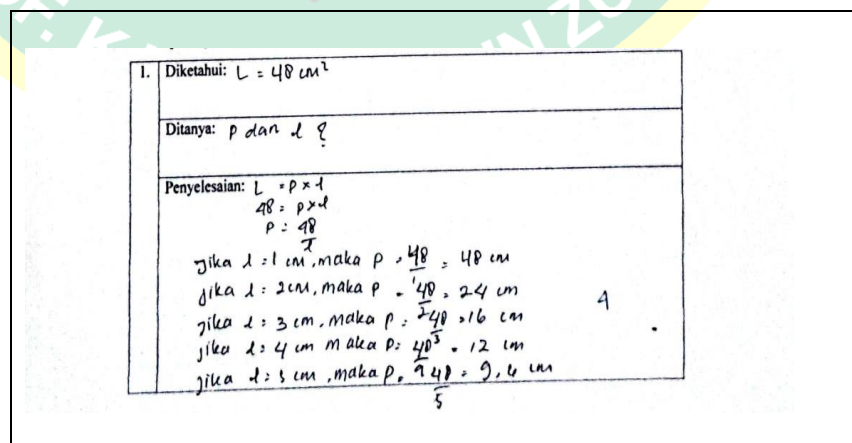 1. Diketahui: L = 48 cm²
Ditanya: p dan l ?
Penyelesaian: L = p x l
48 = p x l
p = 48/l
Jika l = 1 cm, maka p = 48/1 = 48 cm
Jika l = 2 cm, maka p = 48/2 = 24 cm
Jika l = 3 cm, maka p = 48/3 = 16 cm
4
Jika l = 4 cm maka p = 48/4 = 12 cm
Jika l = 5 cm, maka p = 48/5 = 9,6 cm